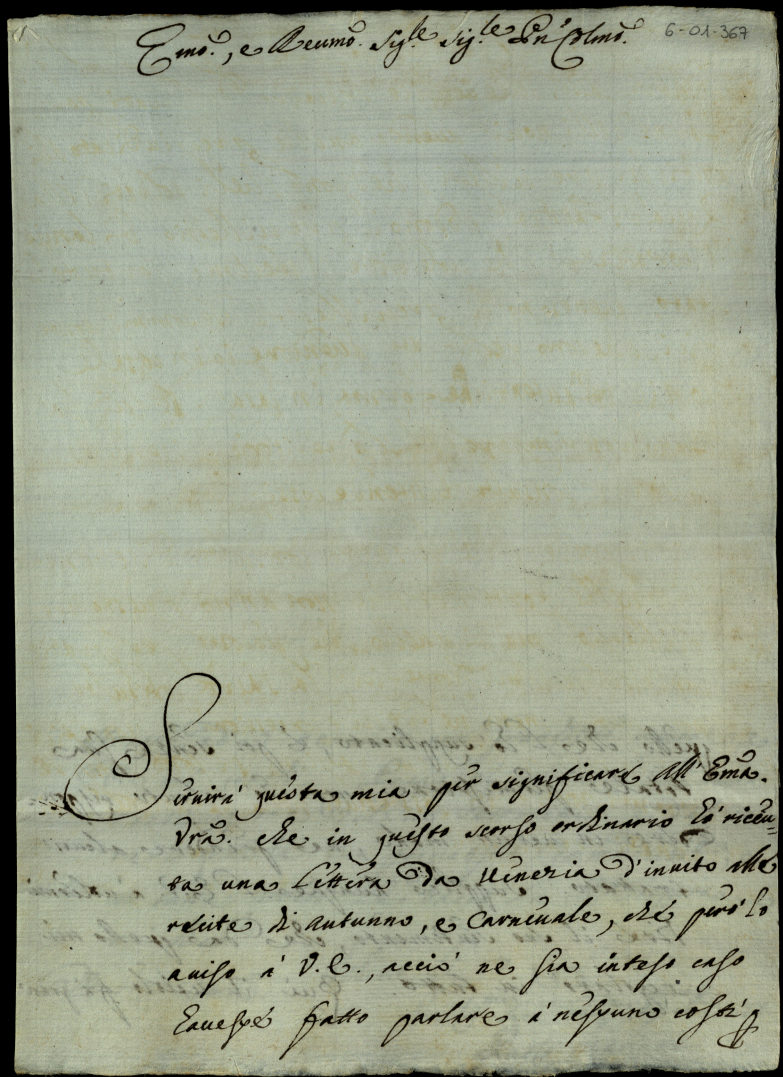 6-01-367
Emo., e Reumo. Sigle. Sigle. Pne. Colmo.
Seruirà questa mia per significare all'Ema.
Vrã. che in questo scorso ordinario hò riceu=
ta una lettera da Uenezia d'inuito alle
recite di Autunno, e Carneuale, che però lo
auiso à V. E., acciò ne sia inteso caso
hauesse fatto parlare à nessuno costì